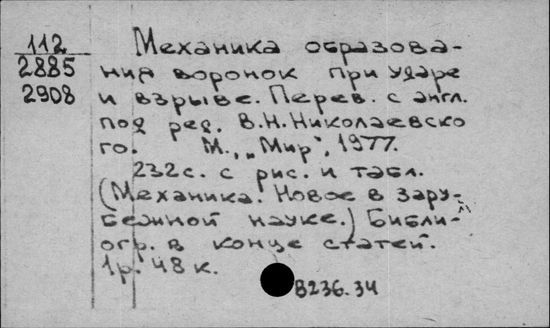 112 Механика образова-
2885 ния воронок при ударе
2908 и взрыве. Перев. с англ.
под ред. В.Н.Николаевско
го. М., „Мир", 1977.
232с. с рис. и табл.
(Механика. Новое в зару-
бежной науке.) Библи-
огр. в конце статей.
1р. 48 к.
В236.34